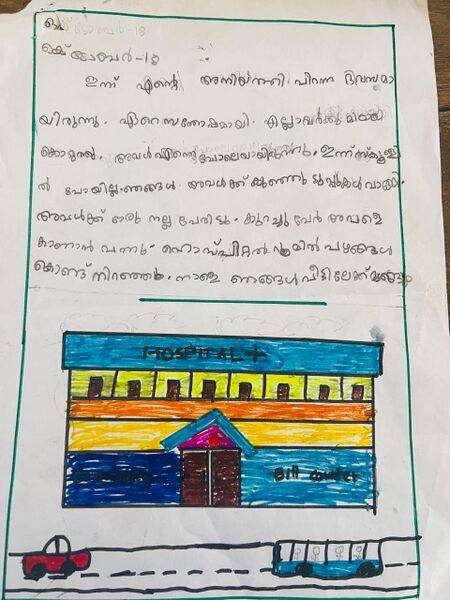 ഒക്ടോബർ-18
ഇന്ന് എന്റെ അനിയത്തി പിറന്ന ദിവസമാ
യിരുന്നു. ഏറെ സന്തോഷമായി. എല്ലാവർക്കും മിഠായി
കൊടുത്തു. അവൾ എന്റെ പോലെയായിരുന്നു. ഇന്ന് സ്കൂളി
ൽ പോയില്ല ഞങ്ങൾ. അവൾക്ക് കുഞ്ഞുടുപ്പുകൾ വാങ്ങി.
അവൾക്ക് ഒരു നല്ല പേരിട്ടു. കുറച്ചു പേർ അവളെ
കാണാൻ വന്നു. ഹൊസ്പ്പിറ്റൽ റൂമിൽ പഴങ്ങൾ
കൊണ്ട് നിറഞ്ഞു. നാളെ ഞങ്ങൾ വീട്ടിലേക്ക് മടങ്ങും
HOSPITAL +
Bill counter